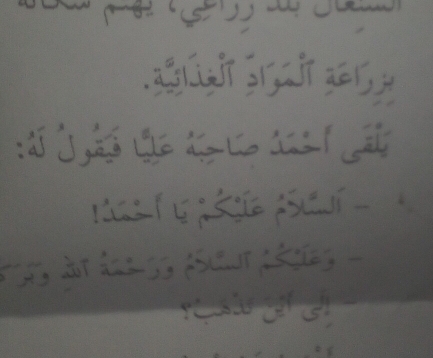 السِّنِغَالُ بَلَدٌ زِرَاعِيٌّ، يَهْتَمُّ سُكَّانُهُ
بِزِرَاعَةِ ٱلْمَوَادِّ ٱلْغِذَائِيَّةِ.
يَلْقَى أَحْمَدُ صَاحِبَهُ عَلِيًّا فَيَقُولُ لَهُ:
- اَلسَّلَامُ عَلَيْكُمْ يَا أَحْمَدُ!
- وَعَلَيْكُمُ ٱلسَّلَامُ وَرَحْمَةُ ٱللهِ
- إِلَى أَيْنَ تَذْهَبُ؟